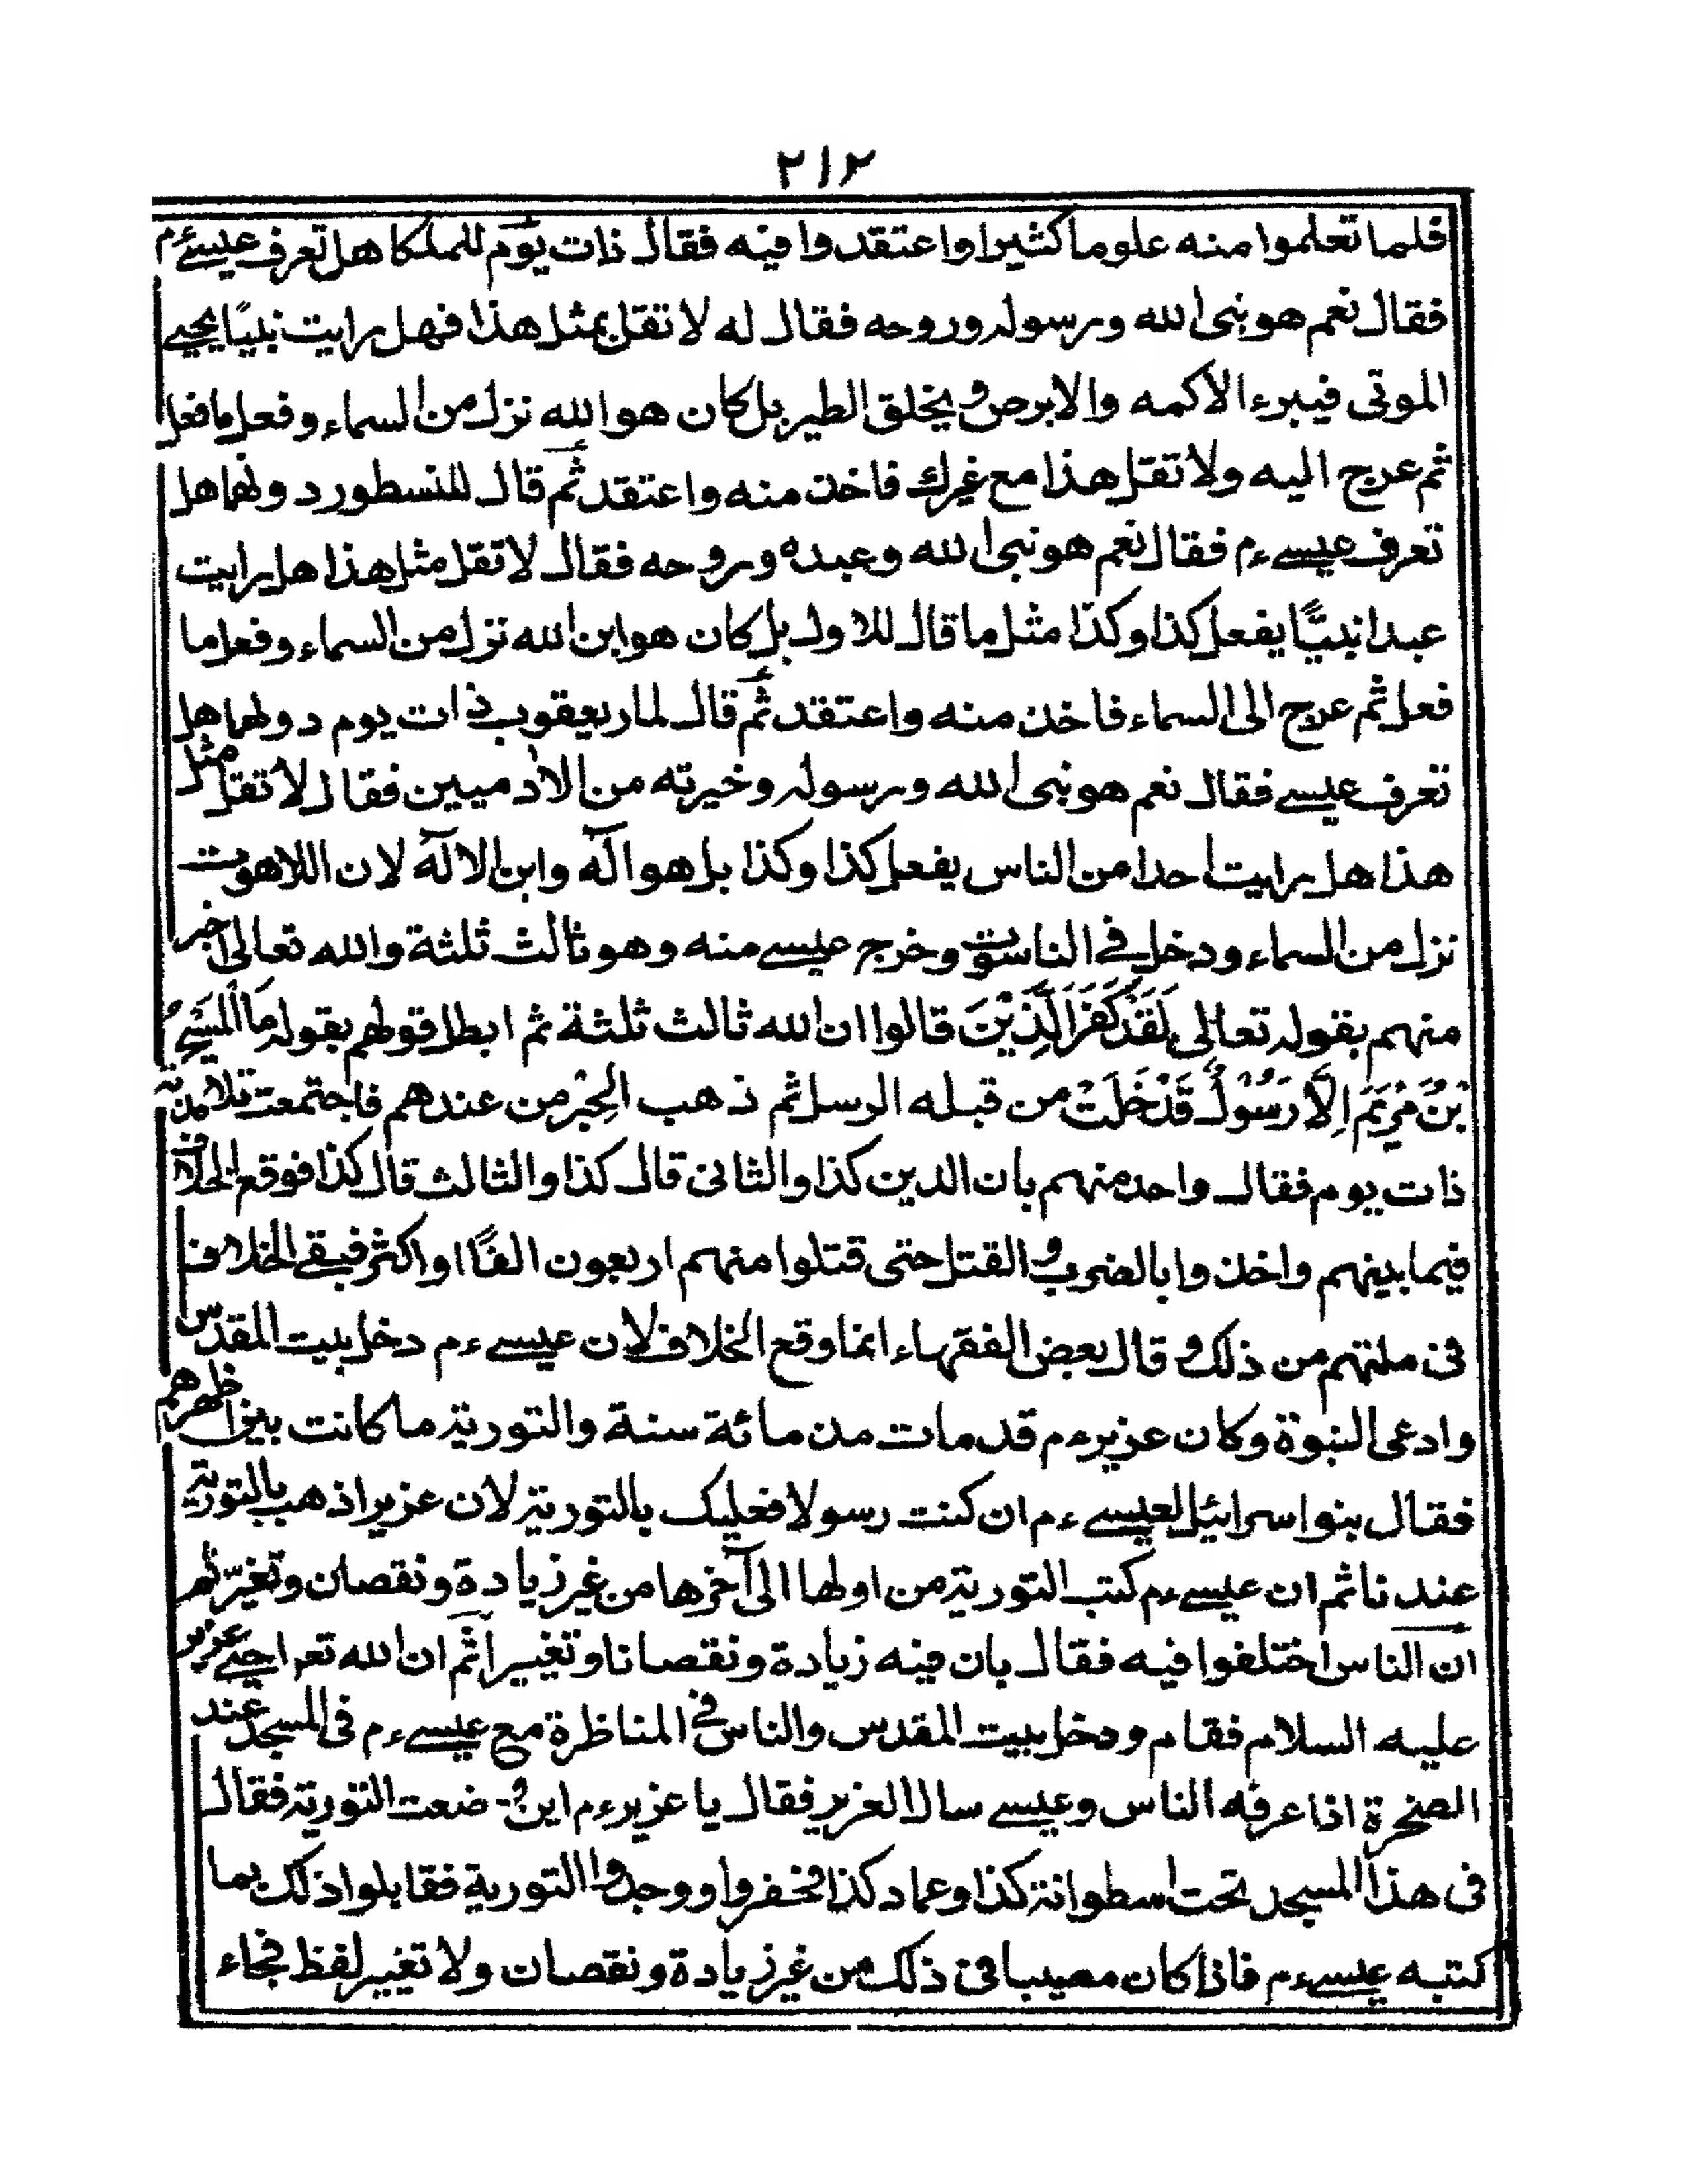 ٢١٢
فلما تعلموا منه علوما كثيرا واعتقدوا فيه فقال ذات يوم للملكا هل تعرف عيسى ءم
فقال نعم هو نبى الله ورسوله وروحه فقال له لا تقل بمثل هذا فهل رايت نبيًا يحيى
الموتى فيبرء الاكمه والابرص ويخلق الطير بل كان هو الله نزل من السماء وفعل ما فعل
ثم عرج اليه ولا تقل هذا مع غيرك فاخذ منه واعتقد ثم قال للنسطور دونهما هل
تعرف عيسى ءم فقال نعم هو نبى الله وعبده وروحه فقال لا تقل مثل هذا هل رايت
عبدا نبيًّا يفعل كذا وكذا مثل ما قال للاول بل كان هو ابن الله نزل من السماء وفعل ما
فعل ثم عرج الى السماء فاخذ منه واعتقد ثم قال لمار يعقوب ذات يوم دونهما هل
تعرف عيسى فقال نعم هو نبى الله ورسوله وخيرته من الادميين فقال لا تقل مثل
هذا هل رايت احدا من الناس يفعل كذا وكذا بل هو اله وابن الاله لان اللاهوت
نزل من السماء ودخل فى الناسوت وخرج عيسى منه وهو ثالث ثلثة والله تعالى اخبر
منهم بقوله تعالى لَقَدْ كَفَرَ الَّذِيْنَ قالوا ان الله ثالث ثلثة ثم ابطل قولهم بقوله مَا الْمَسِيْحُ
بْنُ مَرْيَمَ اِلَّا رَسُوْلٌ قَدْ خَلَتْ من قبله الرسل ثم ذهب الحِبْر من عندهم فاجتمعت تلامذته
ذات يوم فقال واحد منهم بان الدين كذا والثانى قال كذا والثالث قال كذا فوقع الخلاف
فيما بينهم واخذوا بالضرب والقتل حتى قتلوا منهم اربعون الفًا او اكثر فبقى الخلاف
فى ملتهم من ذلك وقال بعض الفقهاء انما وقع الخلاف لان عيسى ءم دخل بيت المقدس
وادعى النبوة وكان عزير ءم قد مات من مائة سنة والتورية ما كانت بين اظهرهم
فقال بنوا اسرائيل لعيسى ءم ان كنت رسولا فعليك بالتورية لان عزيرا ذهب بالتورية
عندنا ثم ان عيسى ءم كتب التورية من اولها الى آخرها من غير زيادة ونقصان وتغيّر ثم
ان الناس اختلفوا فيه فقال بان فيه زيادة ونقصانا وتغييرا ثم ان الله تعـ احيى عزير
عليه السلام فقام ودخل بيت المقدس والناس فى المناظرة مع عيسى ءم فى المسجد عند
الصخرة اذا عرفه الناس وعيسى سال العزير فقال يا عزير ءم اين وضعت التورية فقال
فى هذا المسجد تحت اسطوانة كذا وعماد كذا فحفروا ووجدوا التورية فقابلوا ذلك بما
كتبه عيسى ءم فاذا كان مصيبا فى ذلك من غير زيادة ونقصان ولا تغيير لفظ فجاء